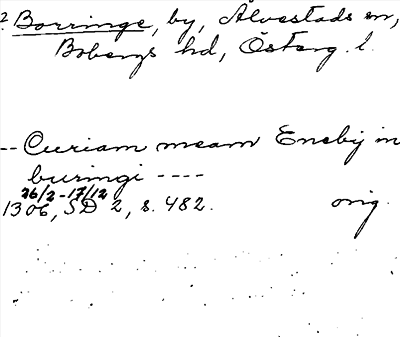 ? Borringe, by, Älvestads sn,
Bobergs hd, Österg. l.
-- Curiam meam Eneby in
buringi ----
26/2 - 17/12
1306, SD 2, s. 482. orig.